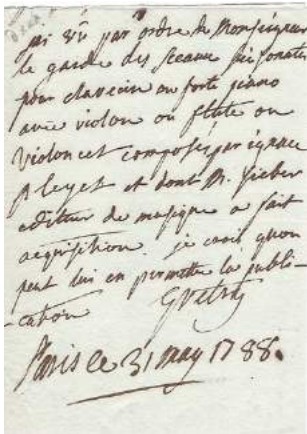 jai vu par ordre de Monseigneur
le garde des sceaux six sonates
pour clavecin ou forte piano
avec violon ou flute ou
violoncel composées par ignace
pleyel et dont M. sieber
editeur de musique a fait
acquisition. je crois quon
peut lui en permettre la publi-
-cation
Gretry
Paris ce 31 may 1788.